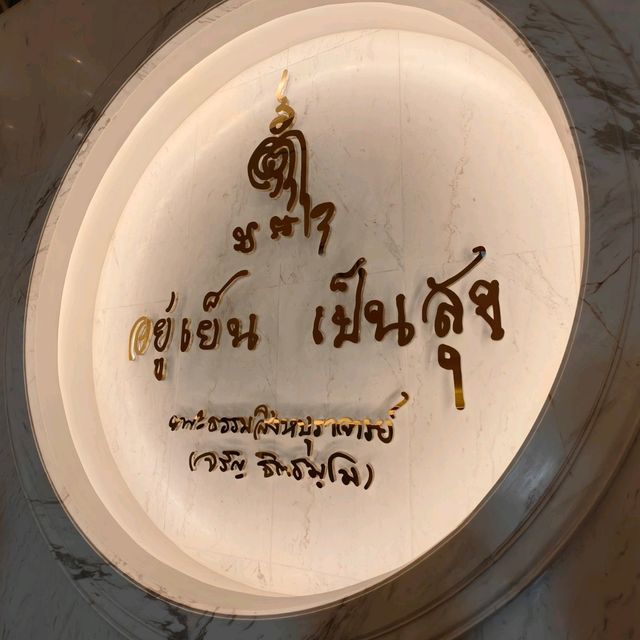 อยู่เย็น เป็นสุข
พระธรรมสิงหบุราจารย์
(จรัญ ฐิตธมฺโม)